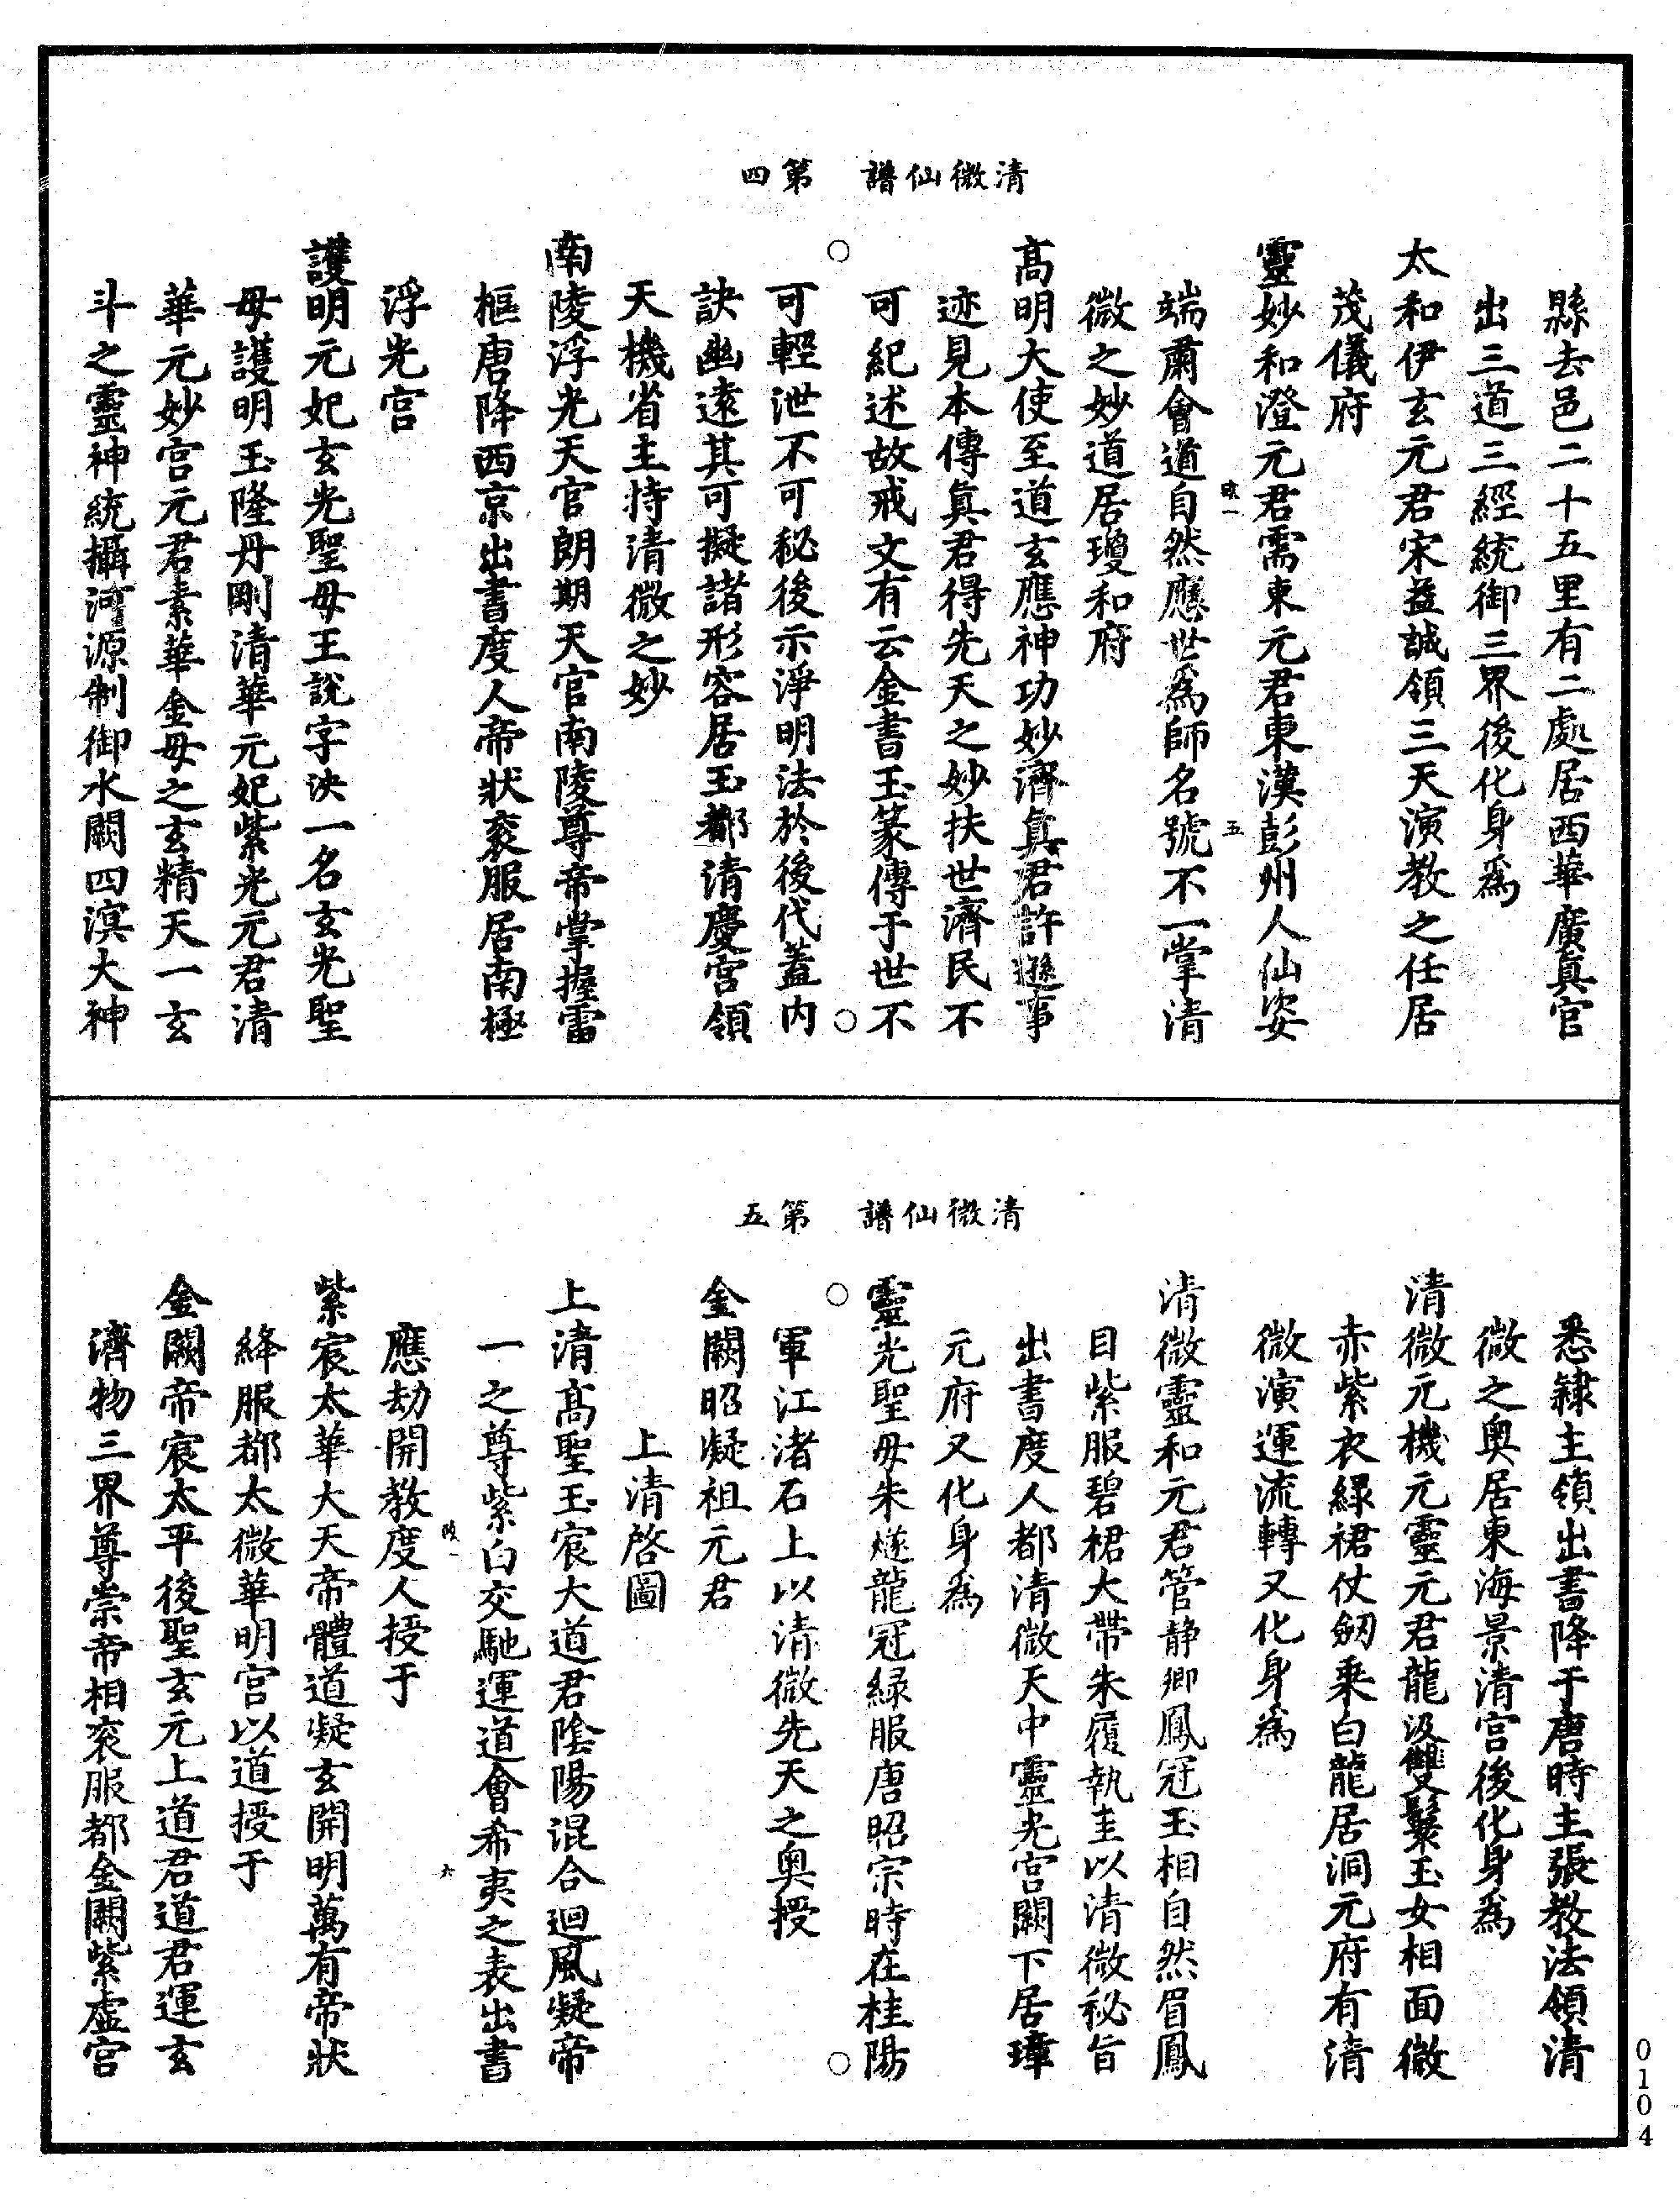 清微仙譜　第四
縣去邑二十五里有二處居西華廣真官
出三道三經統御三界後化身爲
太和伊玄元君宋益誠領三天演教之任居
茂儀府
靈妙和澄元君需東元君東漢彭州人仙姿
端肅會遒自然應世爲師名號不一掌清
微之妙道居瓊和府
高明大使至道玄應神功妙濟真君許遜事
迹見本傳真君得先天之妙扶世濟民不
可紀述故戒文有云金書玉篆傳于世不
可輕泄不可秘後示淨明法於後代蓋內
訣幽遠其可擬諸形容居玉都清慶宮領
天機省主持清微之妙
南陵浮光天官朗期天官南陵尊帝掌握雷
樞唐降西京出書度人帝狀衮服居南極
浮光宮
護明元妃玄光聖母王說字泱一名玄光聖
母護明玉隆丹剛清華元妃紫光元君清
華元妙宮元君素華金母之玄精天一玄
斗之靈神統攝河源制御水闕四溟大神
清微仙譜　第五
悉隸主領出書降于唐時主張教法領清
微之奧居東海景清宮後化身爲
清微元機元靈元君龍汲雙鬟玉女相面微
赤紫衣綠裙仗劒乘白龍居洞元府有清
微演運流轉又化身爲
清微靈和元君管靜卿鳳冠玉相自然眉鳳
目紫服碧裙大帶朱履執圭以清微秘旨
出書度人都清微天中靈光宮闕下居瑋
元府又化身爲
靈光聖母朱燧龍冠綠服唐昭宗時在桂陽
軍江渚石上以清微先天之奧授
金闕昭凝祖元君
上清啓圖
上清高聖玉宸大道君陰陽混合迴風凝帝
一之尊紫白交馳運道會希夷之表出書
應劫開教度人授于
紫宸太華大天帝體道凝玄開明萬有帝狀
絳服都太微華明宮以道授于
金闕帝宸太平後聖玄元上道君道君運玄
濟物三界尊崇帝相衮服都金闕紫虛宮
0104